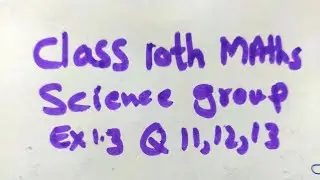 Class 10th MAths
Science group
Ex 1.3 Q 11,12,13